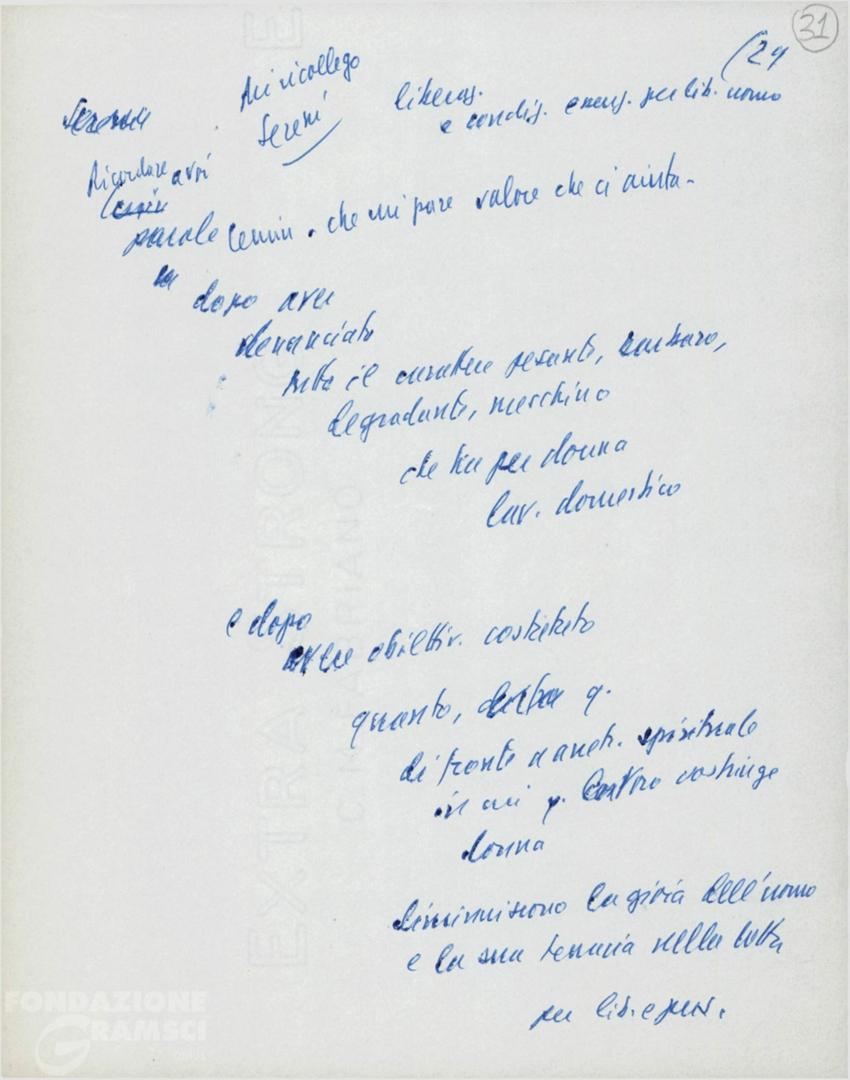 31
(24
Mi ricollego
Sereni
liberaz.
e condiz. emanc. per lib. uomo
Ricordare a voi
parole Lenin. che mi pare valore che ci aiuta-
dopo aver
denunciato
tutto il carattere pesante, barbaro,
degradante, meschino
che ha per donna
lav. domestico
e dopo
avere obiettiv. costretto
quanto, q.
di fronte a aret. spirituale
in cui q. costringe
donna
diminuiscono la gioia dell'uomo
e la sua tenacia nella lotta
per lib. e
EXTRA STRONG
C.M. FABRIANO
FONDAZIONE
GRAMSCI